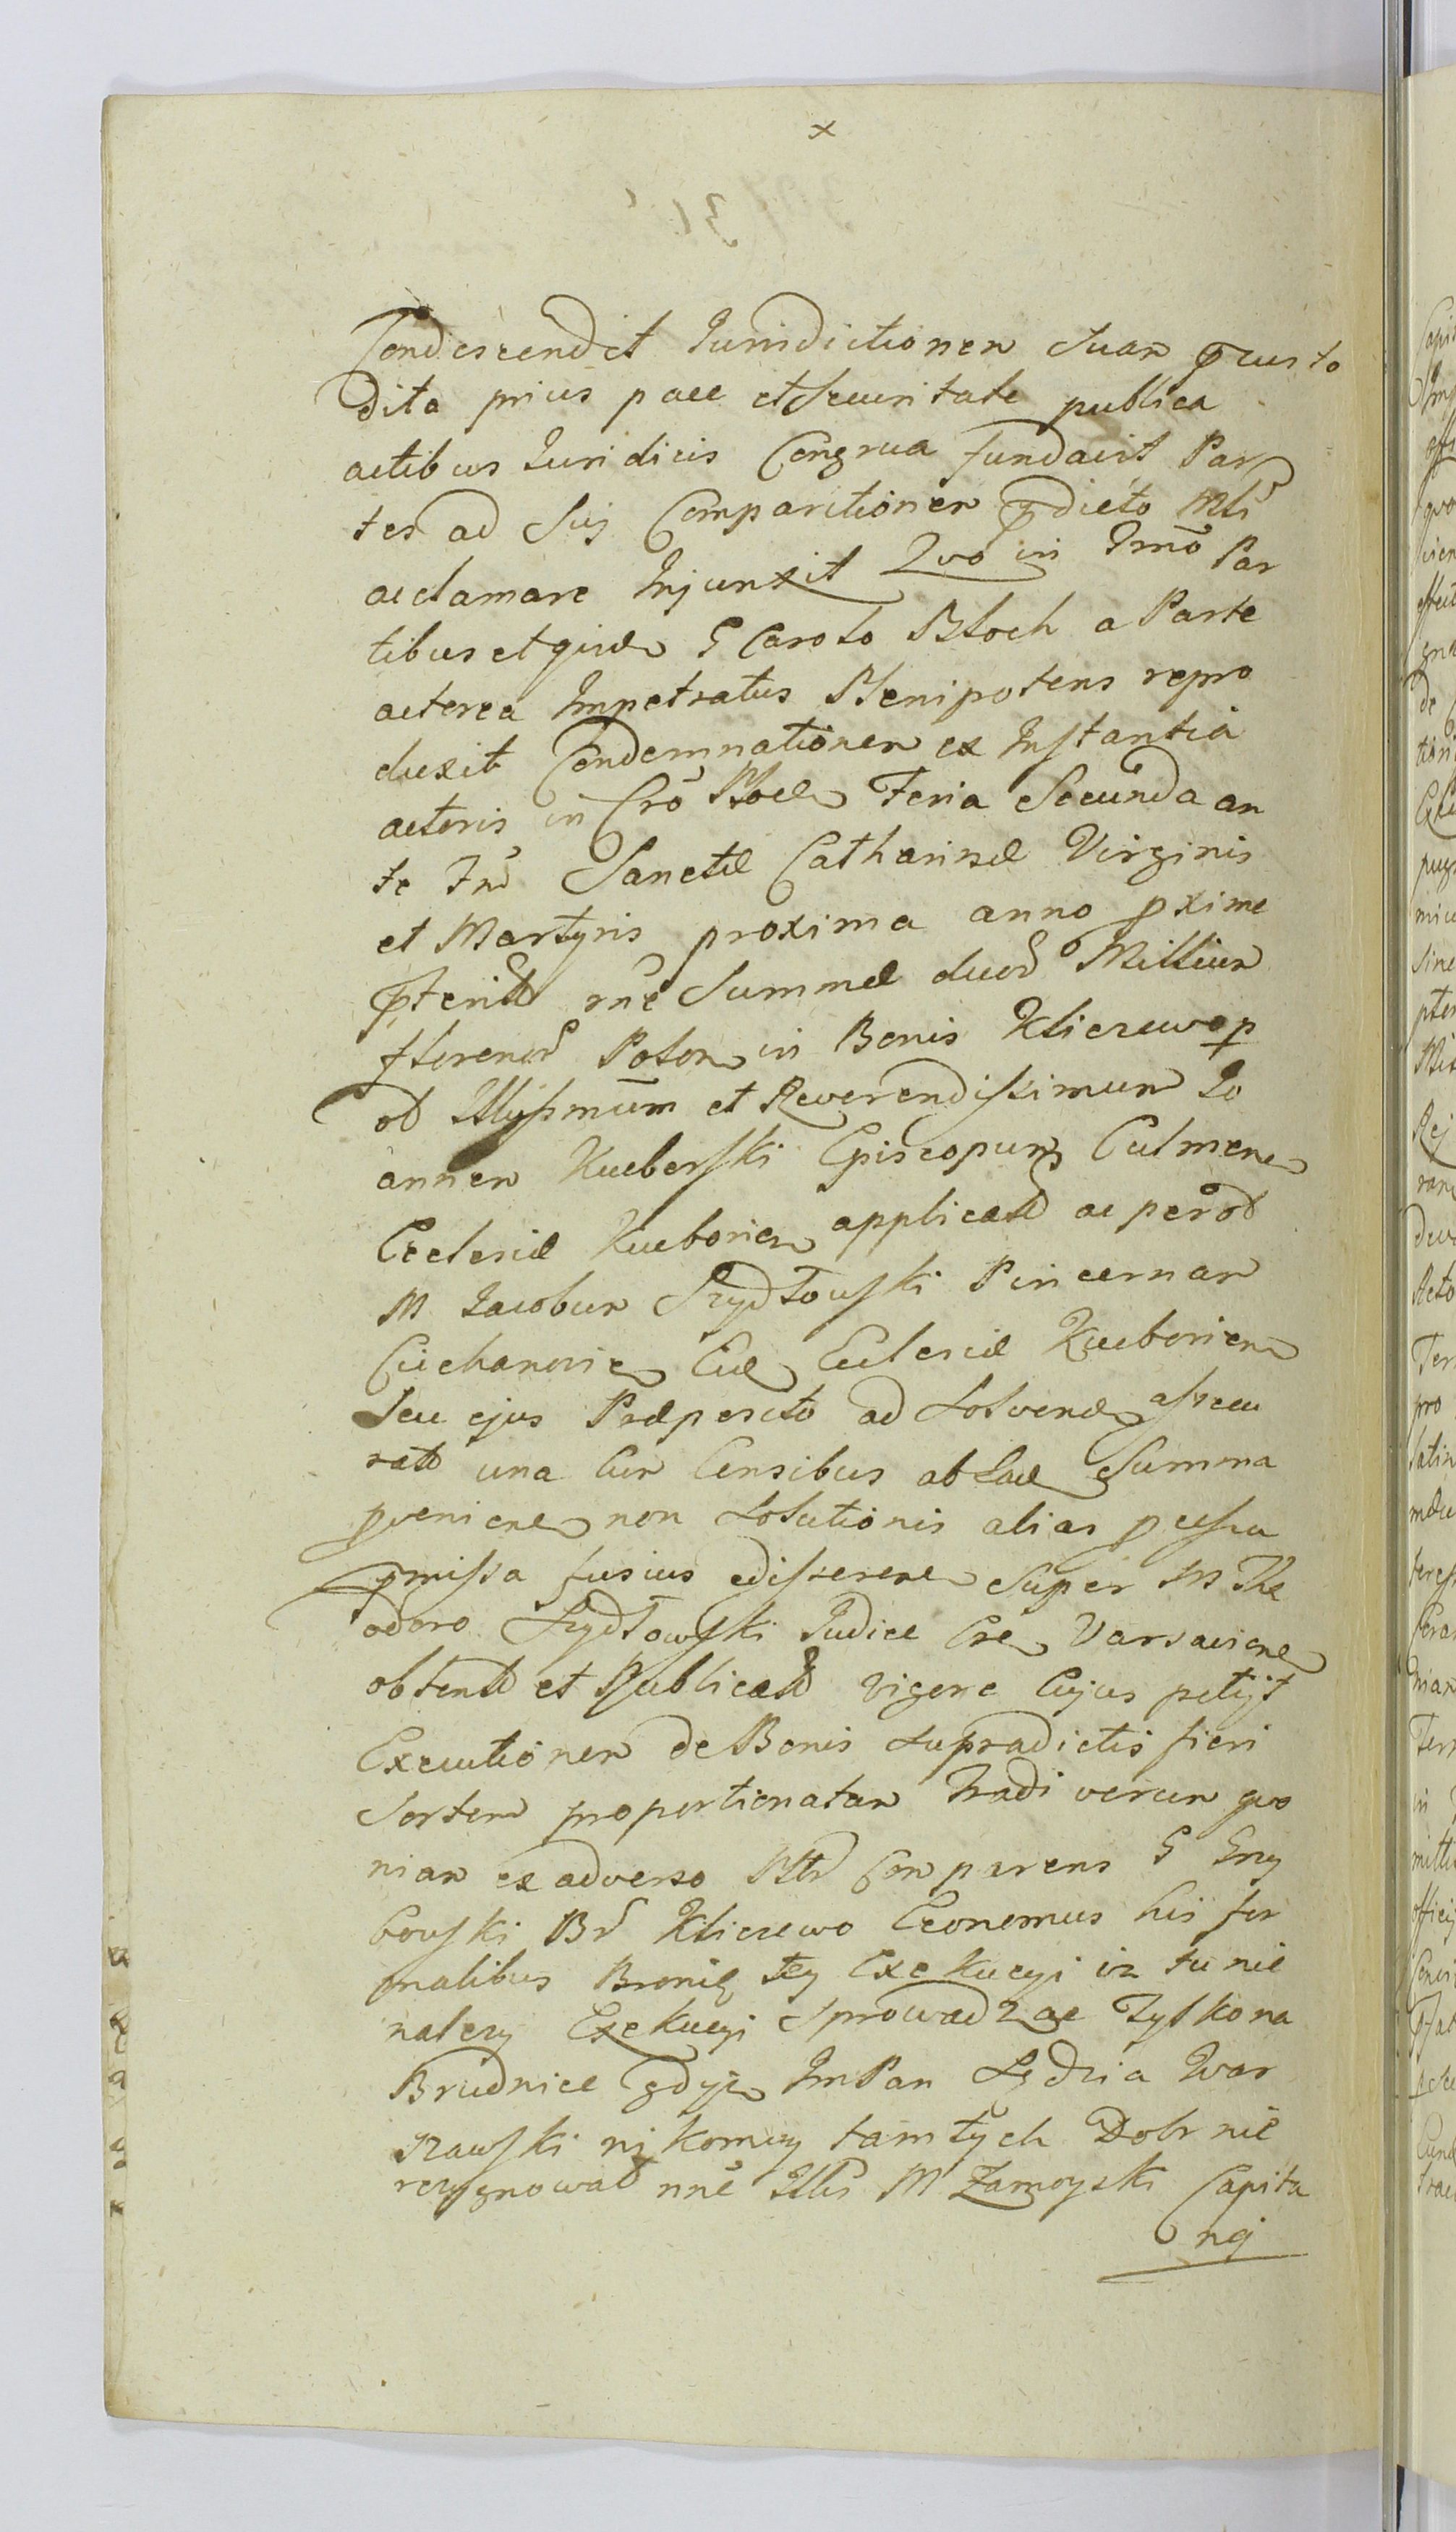 x
Condescendit Jurisdictionem Suam pcusto
dita prius pace et Securitate publica
actibus Juridicis Congrua fundavit Par
tes ad Sui Comparitionem pdicto Mli
acclamare Injunxit Quo in Trno Par
tibus et quidem G Carolo Bloch a Parte
actorea Impetratus Plenipotens repro
duxit Condemnationem ex Instantia
actoris in Cro Ploc Feria Secunda an
te Fm Sanctæ Catharinæ Virginis
et Martyris proxima anno pxime
pterito rne Summæ duor Millium
florenor Polon in Bonis Kliczewo p
ol Illssmum et Reverendissimum Jo
annem Kucborski Episcopum Culmen
Ecclesiæ Kuchorien applicata ac per ol
M Jacobum Szydłowski Pincernam
Ciechanovien Eid Ecclesiæ Kuchorien
Seu ejus Præposito ad Solvend assecu
rata una Cum Censibus ab Ead Summa
pvenien non Solutionis alias pcussa
pmissa fusius edisseren Super M The
odoro Szydłowski Judice Cre Varsavien
obtenta et Publicata vigore Cujus petijt
Executionem de Bonis Supradictis fieri
Sortem proportionatam Tradi verum quo
niam ex adverso Mtr Comparens G Grzy
bowski Br Kliczewo Economus his for
malibus Bronię tey Exekucyi iz tu nie
nalezy Exekucyi Sprowadzac Tylko na
Brudnice gdyz Im Pan Sędzia War
szawski nikomu tamtych Dobr nie
rezygnował nne Illis M Zamoyski Capita
nej